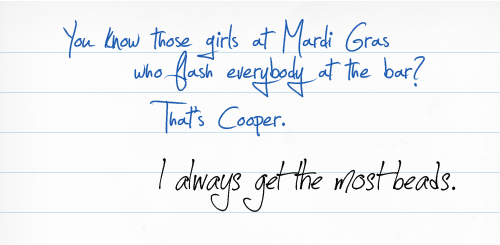 You know those girls at Mardi Gras
who flash everybody at the bar?
That's Cooper.
I always get the most beads.